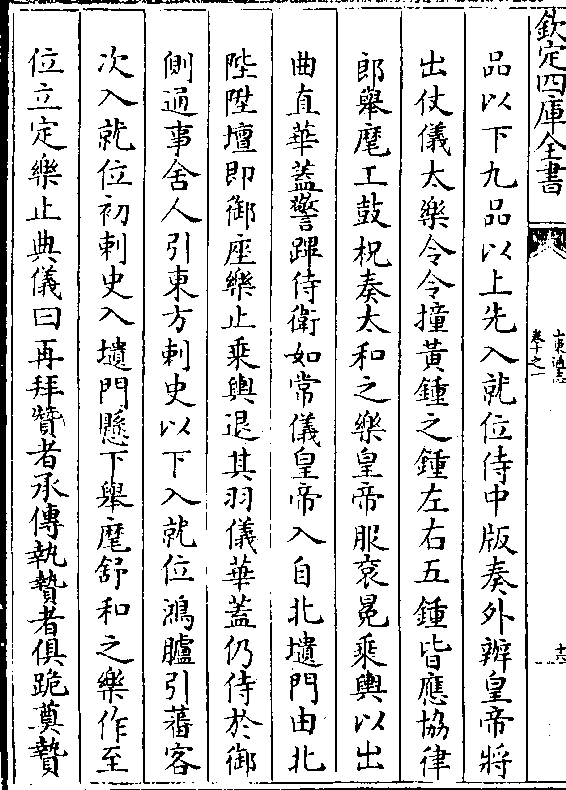 欽定四庫全書
山東通志
卷十之一
品以下九品以上先入就位侍中版奏外辦皇帝將
出仗儀太樂令令撞黃鍾之鍾左右五鍾皆應協律
郎舉麾工鼓柷奏太和之樂皇帝服衮冕乘輿以出
曲直華蓋警蹕侍衛如常儀皇帝入自北壝門由北
陛陞壇即御座樂止乘輿退其羽儀華蓋仍侍於御
側通事舍人引東方刺史以下入就位鴻臚引蕃客
次入就位初刺史入壝門懸下舉麾舒和之樂作至
位立定樂止典儀曰再拜贊者承傳執贄者俱跪奠贄